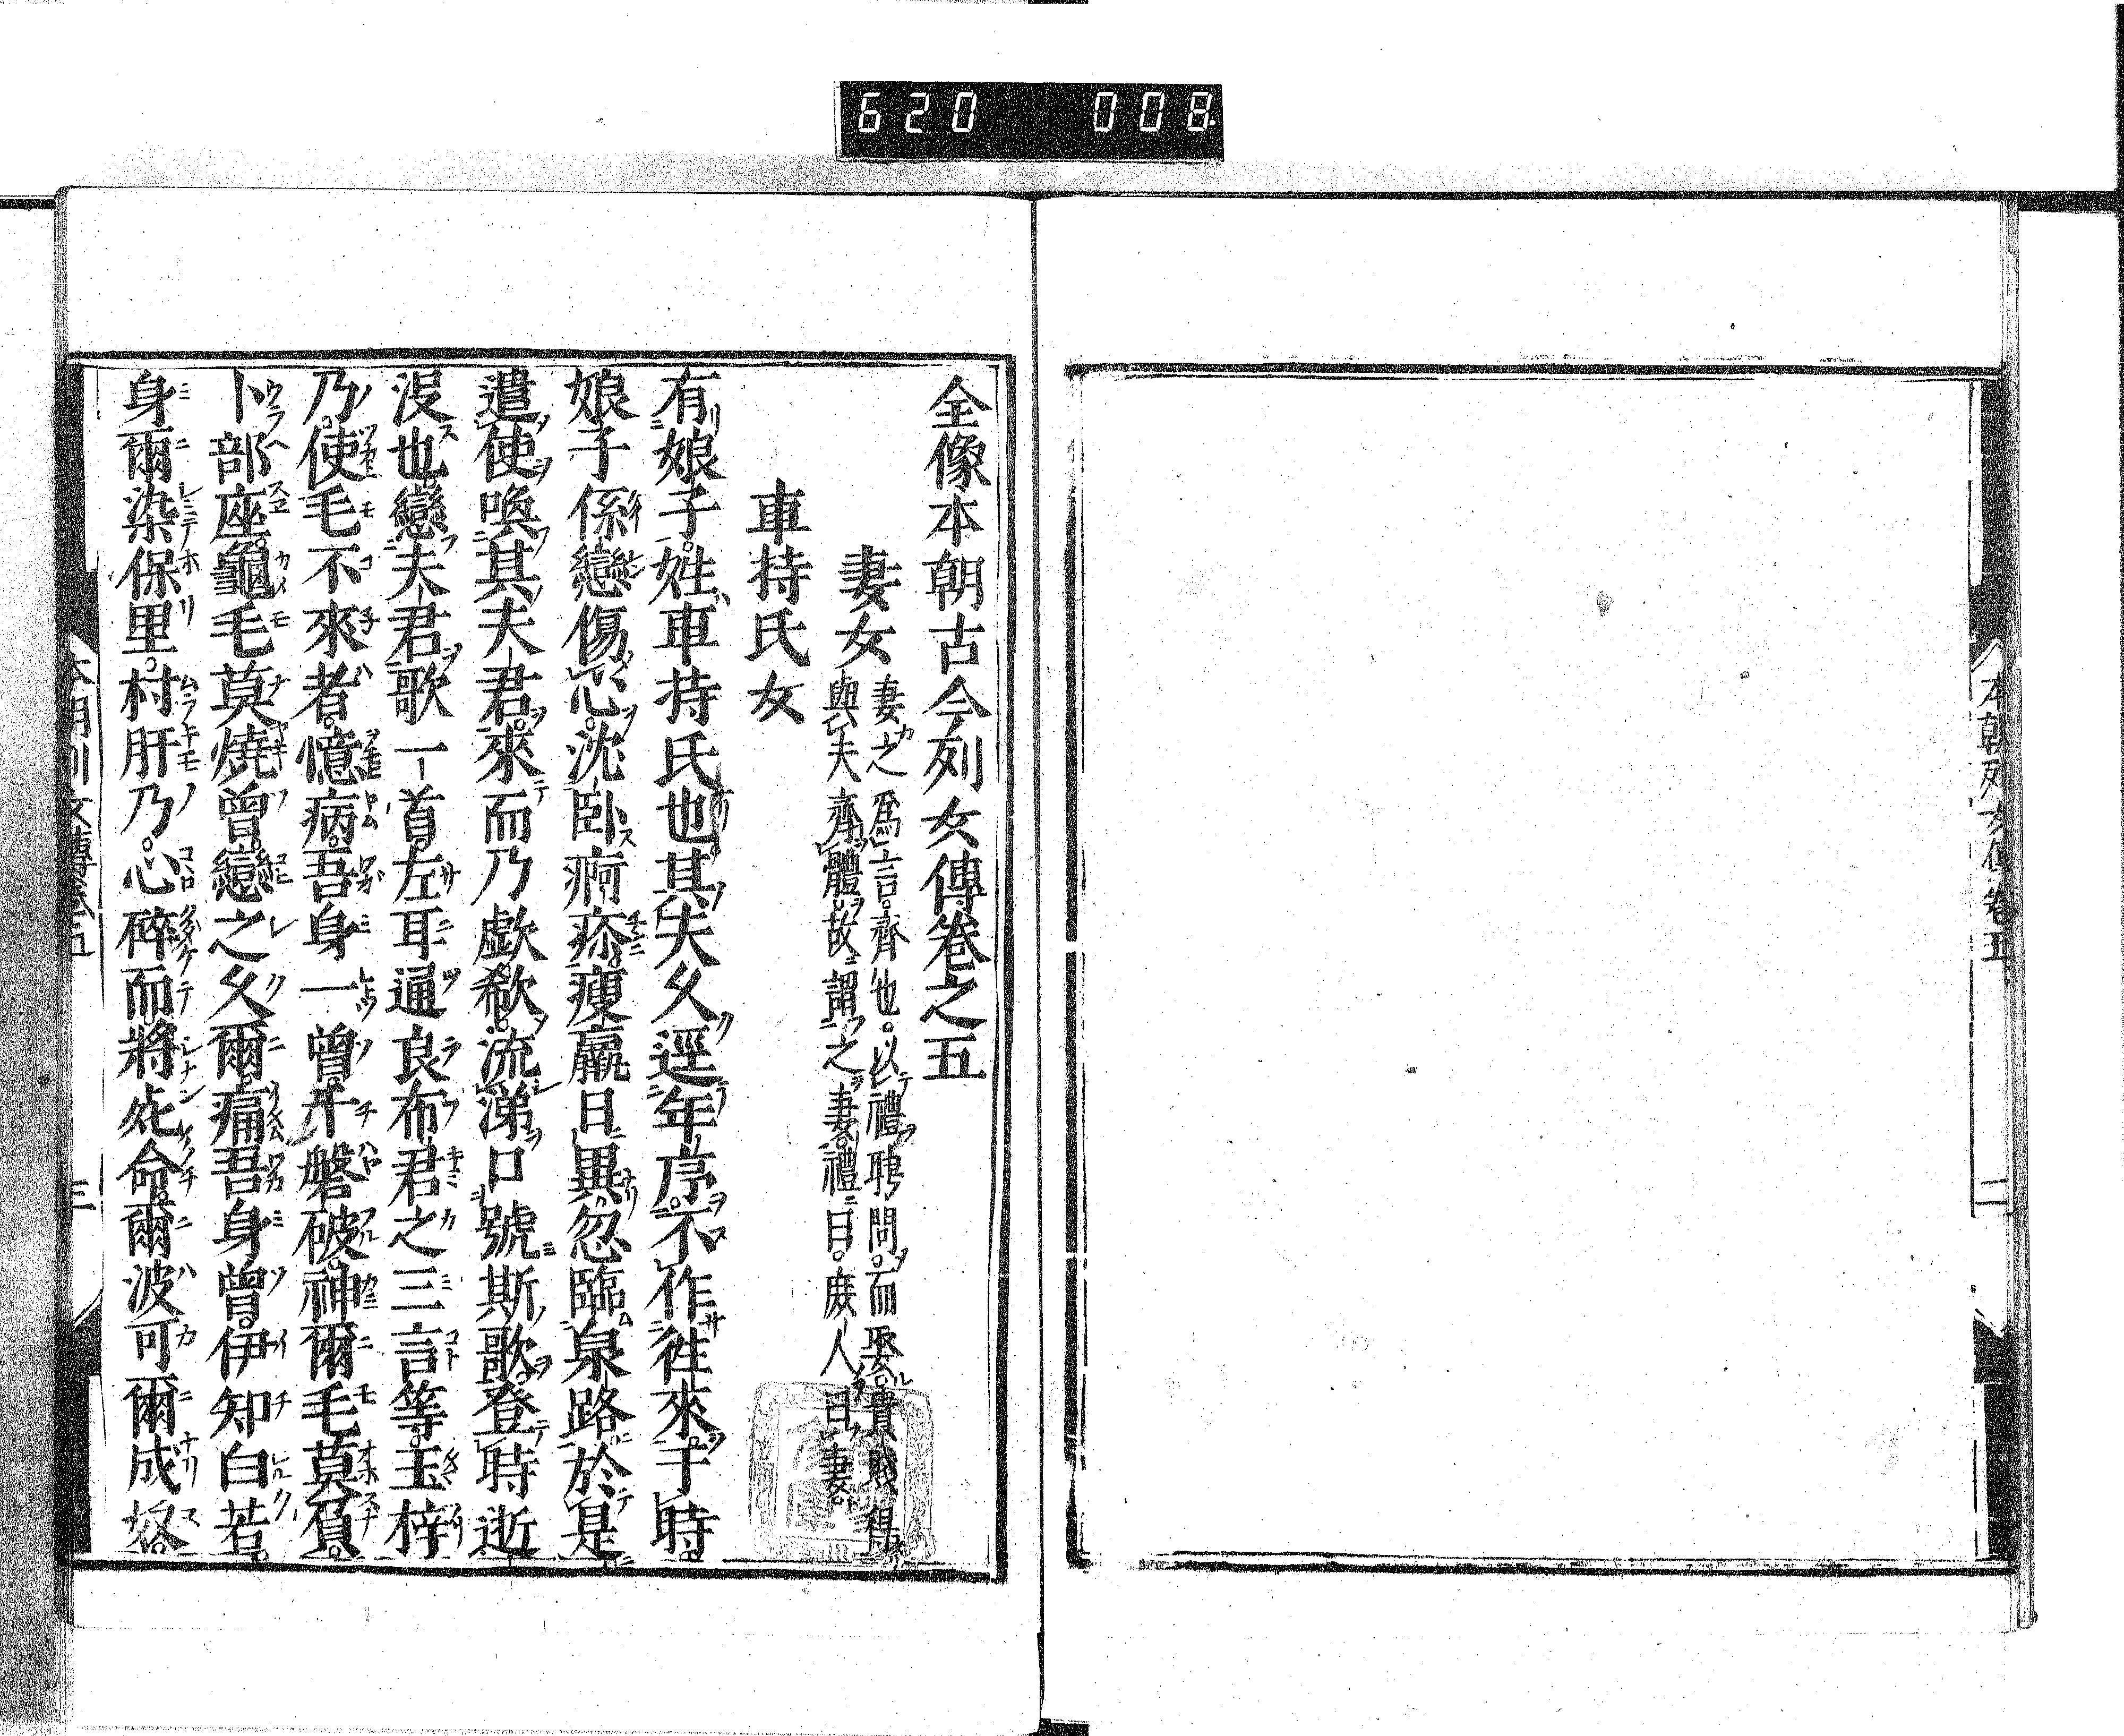 620 008
本朝列女傳卷五
二
全像本朝古今列女傳卷之五
妻女
妻之爲言齊也。以禮聘問。而娶。貴賤得
與夫齊體。故謂之妻。禮曰。庶人曰妻。
車持氏女
有娘子。姓車持氏也。其夫久逕年序。不作徃來。于時。
娘子係戀傷心。沈卧痾疹。瘦羸日異。忽臨泉路。於是
遣使喚其夫君。來而乃歔欷。流涕口號斯歌。登時逝
没也。戀夫君歌一首。左耳通良布君之三言等。玉梓
乃。使毛不來者。憶病。吾身一曾。千磐破。神爾毛莫負。
卜部座。龜毛莫燒曾。戀之久爾。痛吾身曾。伊知白若。
身爾染保里。村肝乃。心碎而將死命。爾波可爾成奴。
本朝列女傳卷五
三